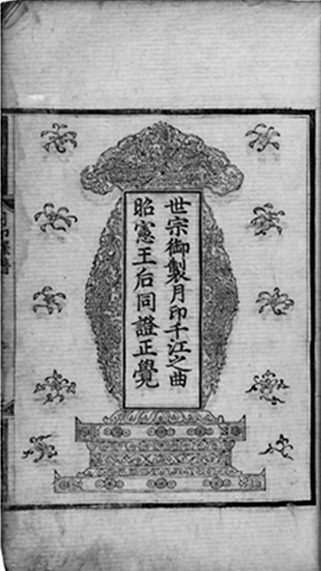 世宗御製月印千江之曲
昭憲王后同證正覺